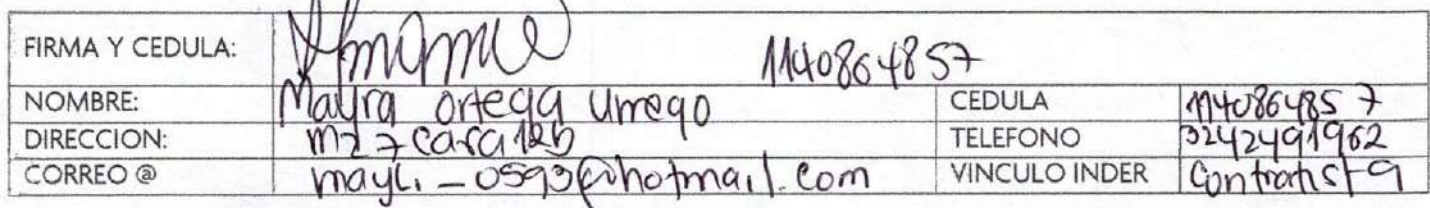 FIRMA Y CEDULA: 1140864857
NOMBRE: Mayra Ortega Urrego CEDULA 1140864857
DIRECCION: mz 7 casa 12b TELEFONO 3242491962
CORREO @ mayli_0593@hotmail.com VINCULO INDER Contratista